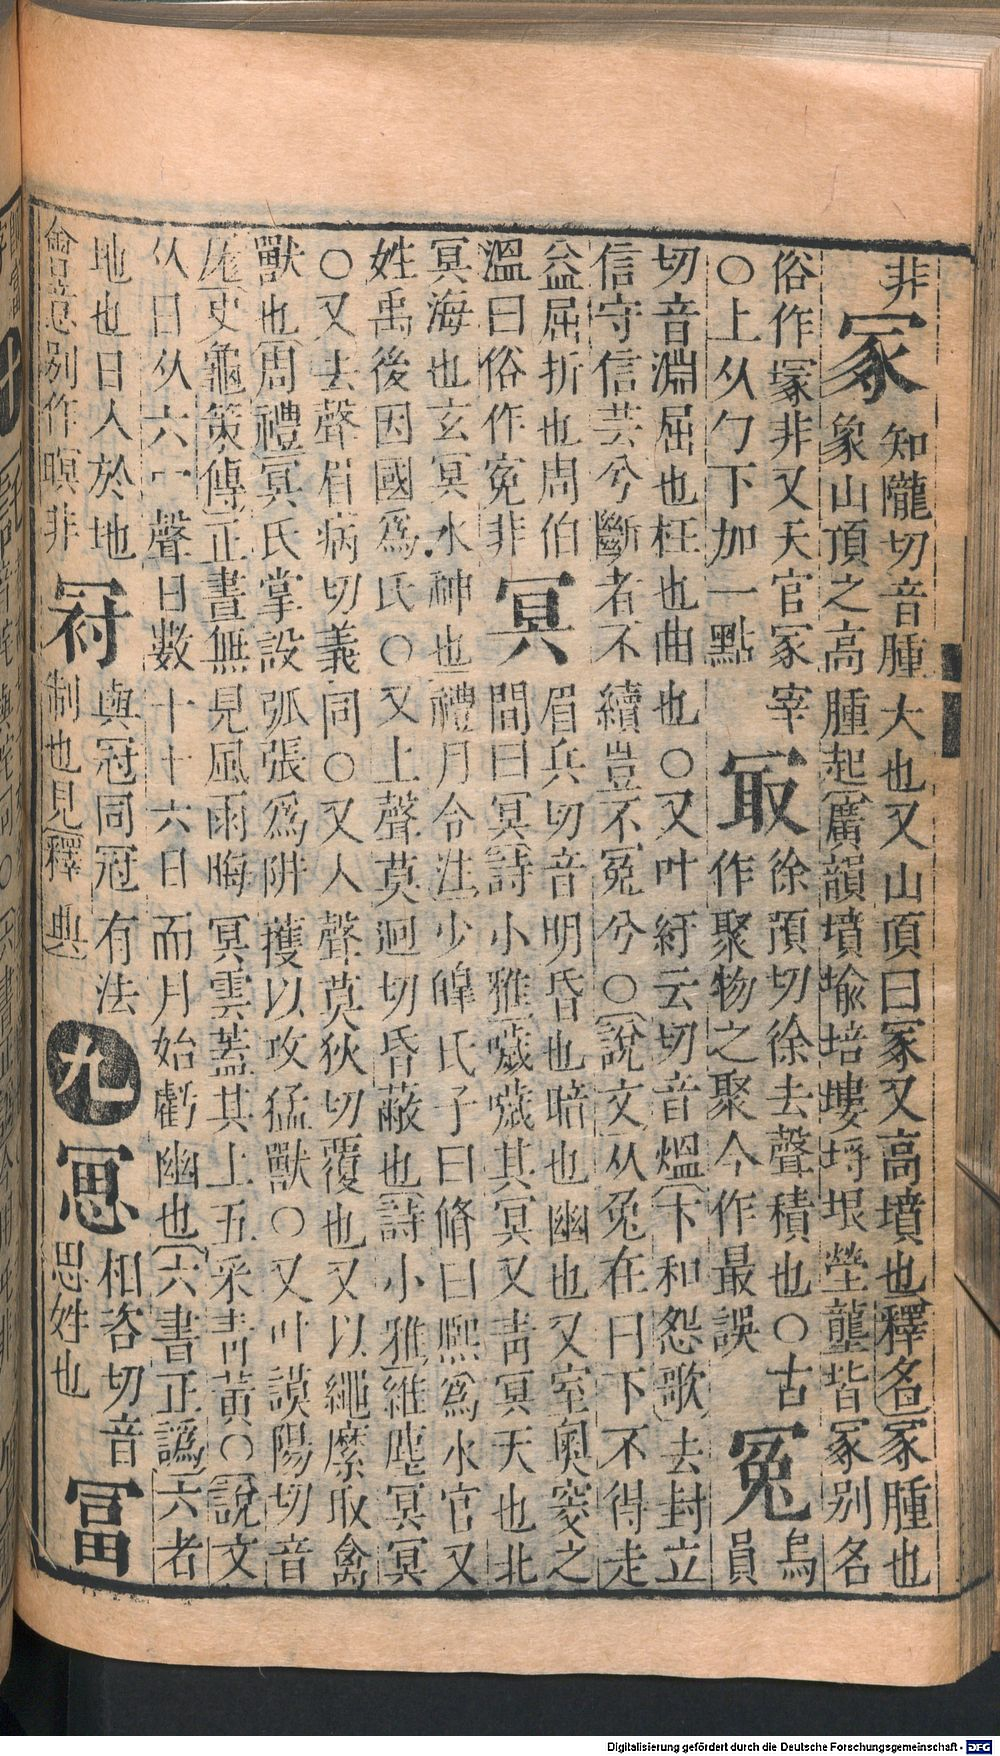 非
冢
知隴切音腫大也又山頂曰冢又高墳也釋名冢腫也
象山頂之高腫起廣韻墳堬培塿埒垠塋壟皆冢別名
俗作塚非又天官冢宰
○上从勹下加一點
冣
徐預切徐去聲積也○古
作聚物之聚今作最誤
冤
烏
員
切音淵屈也枉也曲也○又叶紆云切音熅卞和怨歌去封立
信守信芸兮斷者不續豈不冤兮○說文从兔在冂下不得走
益屈折也周伯
溫曰俗作寃非
冥
眉兵切音明昏也暗也幽也又室奧窔之
間曰冥詩小雅噦噦其冥又靑冥天也北
冥海也玄冥水神也禮月令注少皡氏子曰脩曰熙爲水官又
姓禹後因國爲氏○又上聲莫迥切昏蔽也詩小雅維塵冥冥
○又去聲眉病切義同○又入聲莫狄切覆也又以繩縻取禽
獸也周禮冥氏掌設弧張爲阱擭以攻猛獸○又叶謨陽切音
尨史龜策傳正晝無見風雨晦冥雲蓋其上五采靑黃○說文
从日从六冖聲日數十十六日而月始虧幽也六書正譌六者
地也日入於地
會意別作暝非
與冠同冠有法
制也見釋典
九
相咨切音
思姓也
冨
Digitalisierung gefördert durch die Deutsche Forschungsgemeinschaft - DFG